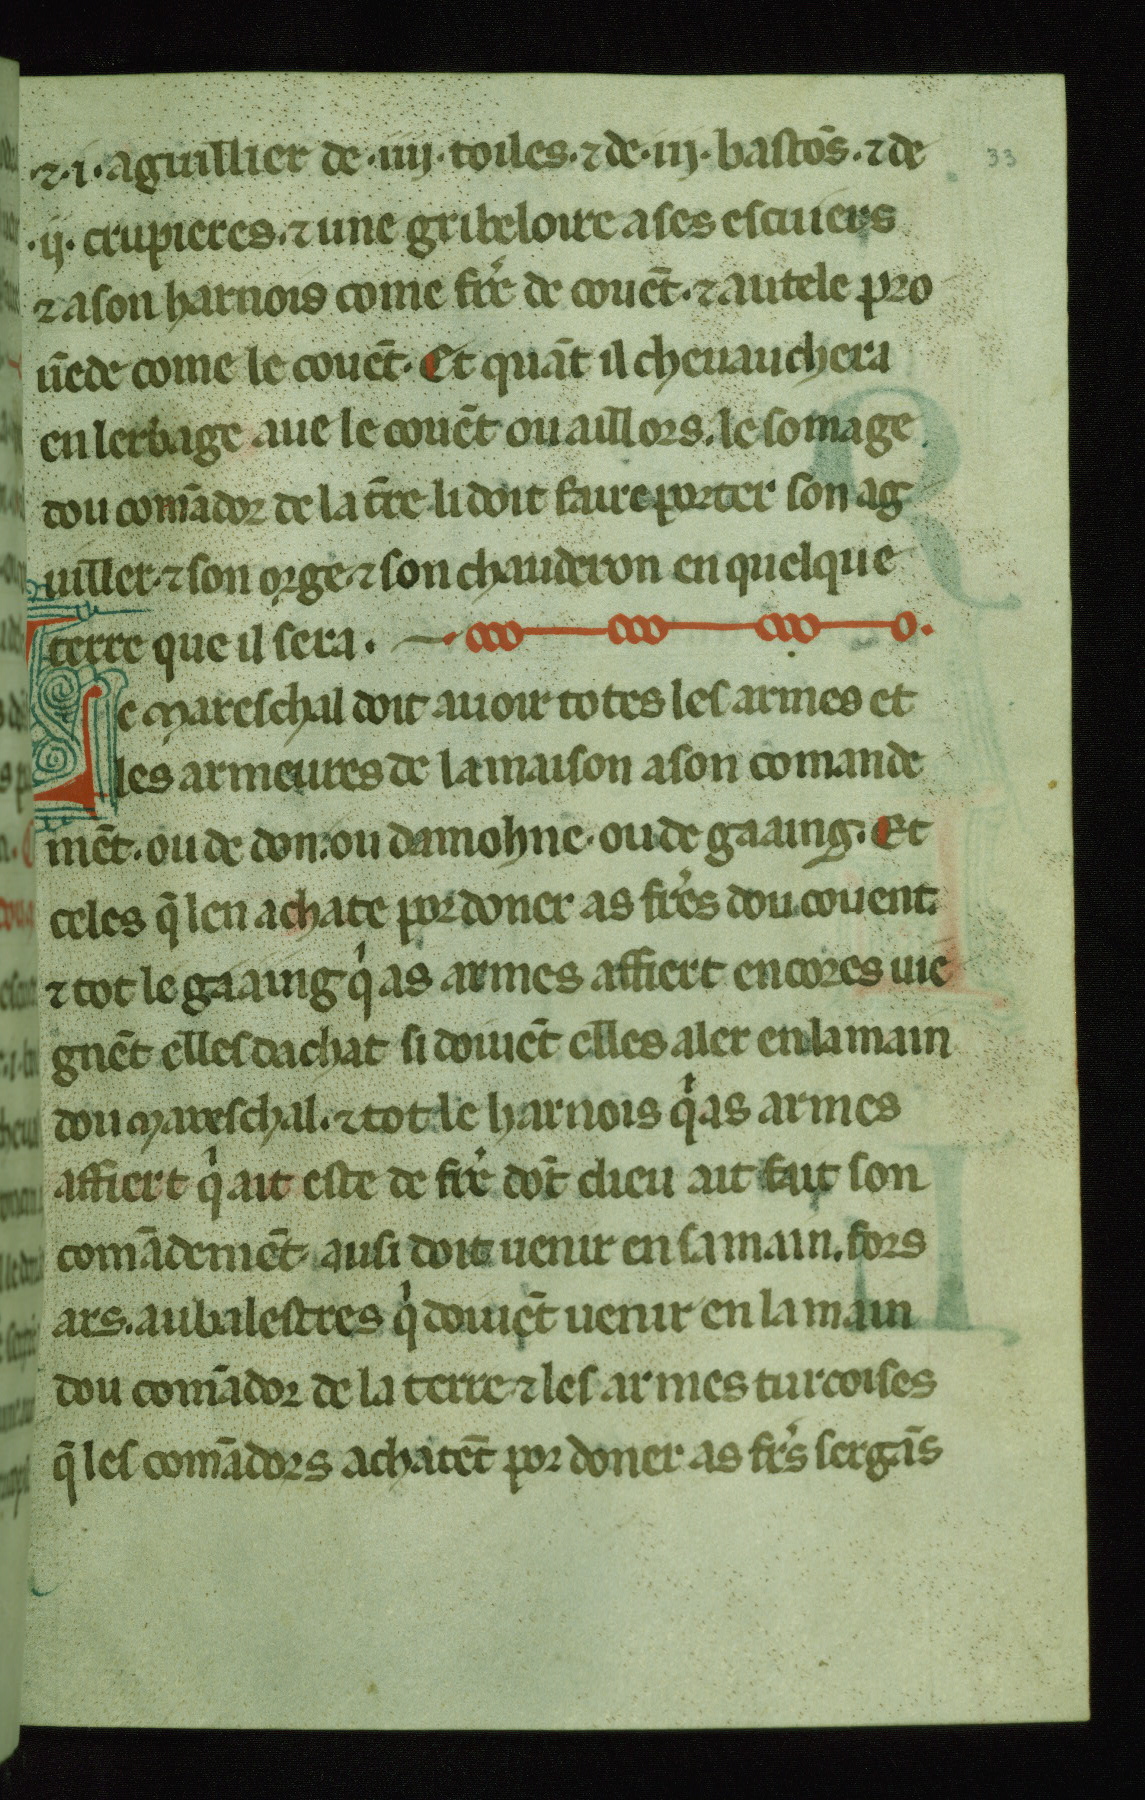 ⁊ .i. aguillier de .iiij. toiles. ⁊ de .iij. bastōs. ⁊ de
33
.ij. crupieres. ⁊ une gribeloire a ses escuiers
⁊ a son harnois come frē de couēt. ⁊ autele pro
uēde come le couēt. Et quāt il cheuauchera
en lerbage aue le couēt ou aillors. le somage
dou comādor de la tr̄e li doit faire porter son ag
uiller. ⁊ son orge. ⁊ son chauderon en quelque
terre que il sera.
Le mareschal doit auoir totes les armes et
les armeures de la maison a son comande
mēt. ou de don. ou damohne. ou de gaaing. Et
celes q̄ len achate por doner as frēs dou couent.
⁊ tot le gaaing qͥ as armes affiert encores uie
gnēt elles dachat si doiuēt elles aler en la main
dou mareschal. ⁊ tot le harnois qͥ as armes
affiert qͥ ait este de frē dōt dieu ait fait son
comādemēt ausi doit uenir en sa main. fors
ars. aubalestres qͥ doiuēt uenir en la main
dou comādor de la terre ⁊ les armes turcoises
q̄ les comādors achatēt por doner as frēs sergās